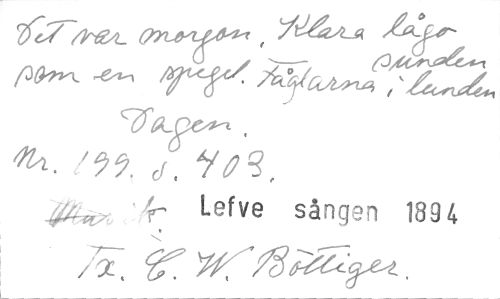 Det var morgon. Klara lågo sunden
som en spegel. Fåglarna i lunden
Dagen.
Nr. 199. s. 403.
Musik. Lefve sången 1894
Tx. C. W. Böttiger.